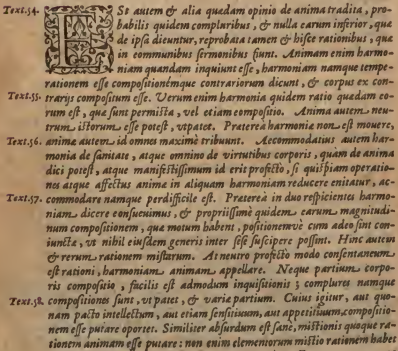 Text.54. ESt autem & alia quædam opinio de anima tradita, pro-
babilis quidem compluribus, & nulla earum inferior, quæ
de ipsa dicuntur, reprobata tamen & hisce rationibus, quæ
in communibus sermonibus fiunt. Animam enim harmo-
niam quandam inquiunt esse, harmoniam namque tempe-
rationem esse compositionémque contrariorum dicunt, & corpus ex con-
Text.55. trarijs compositum esse. Verum enim harmonia quidem ratio quædam eo-
rum est, quæ sunt permista, vel etiam compositio. Anima autem neu-
trum istorum esse potest, vt patet. Præterea harmoniæ non est mouere,
Text.56. animæ autem id omnes maximè tribunt. Accommodatius autem har-
monia de sanitate, atque omnino de virtutibus corporis, quàm de anima
dici potest, atque manifestissimum id erit profectò, si quispiam operatio-
nes atque affectus animæ in aliquam harmoniam reducere enitatur, ac-
Text.57. commodare namque perdifficile est. Præterea in duo respicientes harmo-
niam dicere consueuimus, & propriissimè quidem earum magnitudi-
num compositionem, quæ motum habent, positionemvè cum adeo sint con-
iunctæ, vt nihil eiusdem generis inter sese suscipere possint. Hinc autem
& rerum rationem mistarum. At neutro profectò modo consentaneum
est rationi, harmoniam animam appellare. Neque partium corpo-
ris compositio, facilis est admodum inquisitionis; complures namque
Text.58. compositiones sunt, vt patet, & variæ partium. Cuius igitur, aut quo-
nam pacto intellectum, aut etiam sensitiuum, aut appetitiuum, compositio-
nem esse putare oportet. Similiter absurdum est sanè, mistionis quoque ra-
tionem animam esse putare: non enim elementorum mistio rationem habet